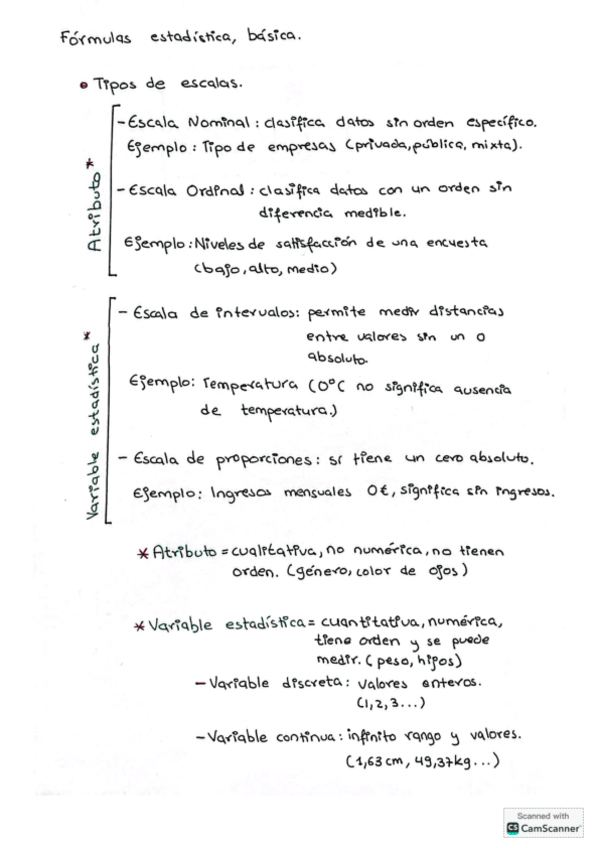 Fórmulas estadística, básica.
• Tipos de escalas.
Atributo*
- Escala Nominal: clasifica datos sin orden específico.
Ejemplo: Tipo de empresas (privada, pública, mixta).
- Escala Ordinal: clasifica datos con un orden sin
diferencia medible.
Ejemplo: Niveles de satisfacción de una encuesta
(bajo, alto, medio)
Variable estadística*
- Escala de intervalos: permite medir distancias
entre valores sin un 0
absoluto.
Ejemplo: Temperatura (0°C no significa ausencia
de temperatura.)
- Escala de proporciones: sí tiene un cero absoluto.
Ejemplo: Ingresos mensuales 0€, significa sin ingresos.
* Atributo = cualitativa, no numérica, no tienen
orden. (género, color de ojos)
* Variable estadística = cuantitativa, numérica,
tiene orden y se puede
medir. (peso, hijos)
- Variable discreta: valores enteros.
(1, 2, 3...)
- Variable continua: infinito rango y valores.
(1,63cm, 49,37kg...)
Scanned with
CS CamScanner